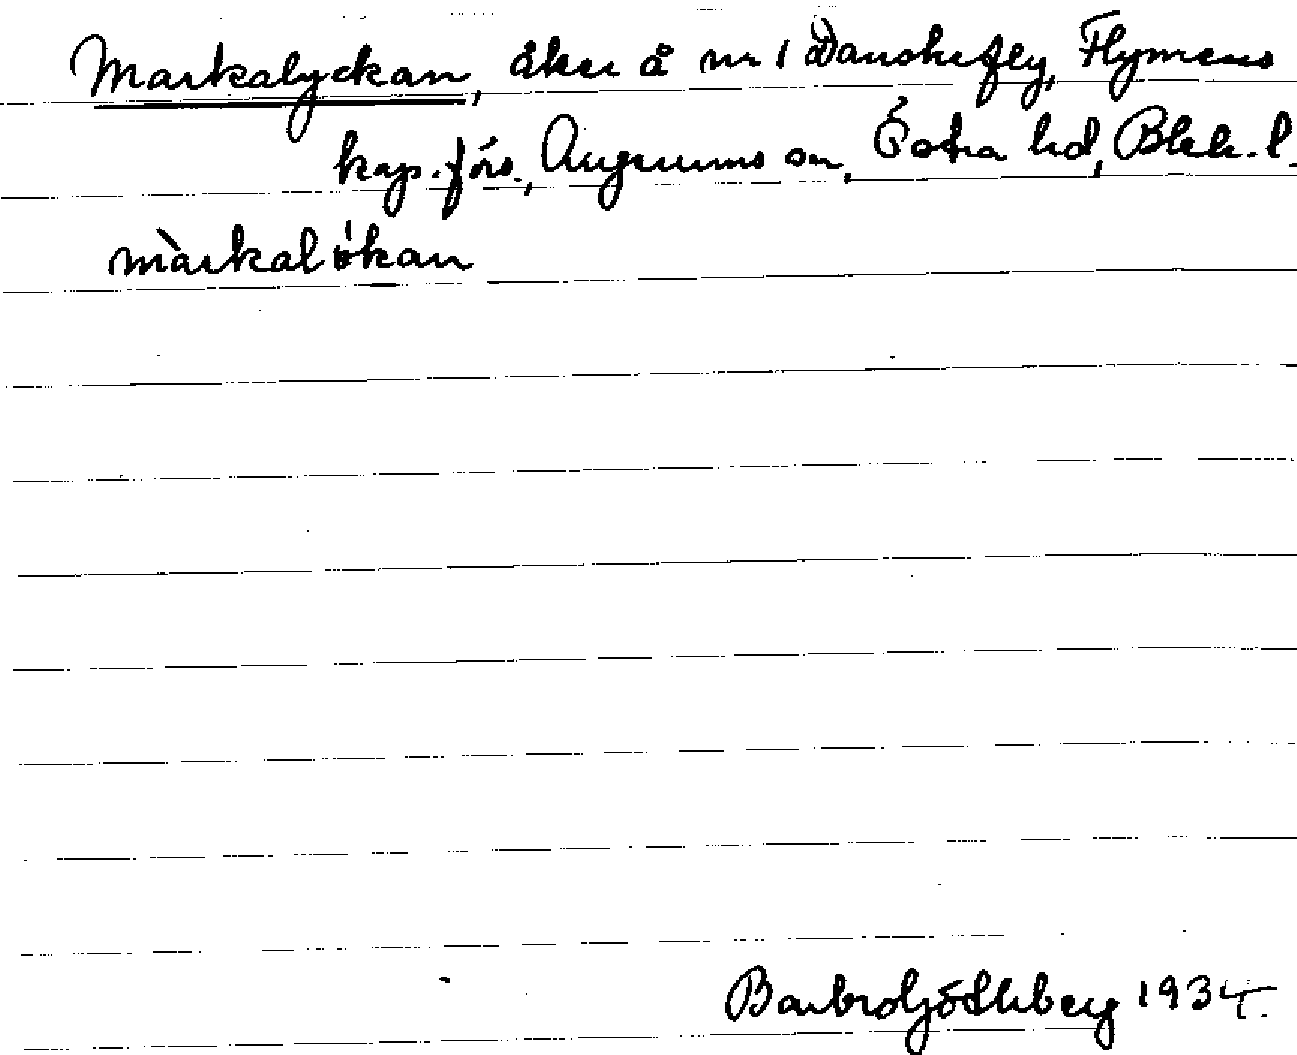 Markalyckan, åker å nr 1 Danskefly, Flymens
kap. förs., Augerums sn, Östra hd, Blek. l.
màrkalökan
Barbro Göthberg 1934.